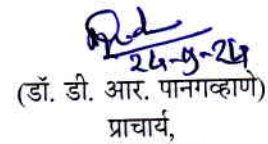 24-9-24
(डॉ. डी. आर. पानगव्हाणे)
प्राचार्य,